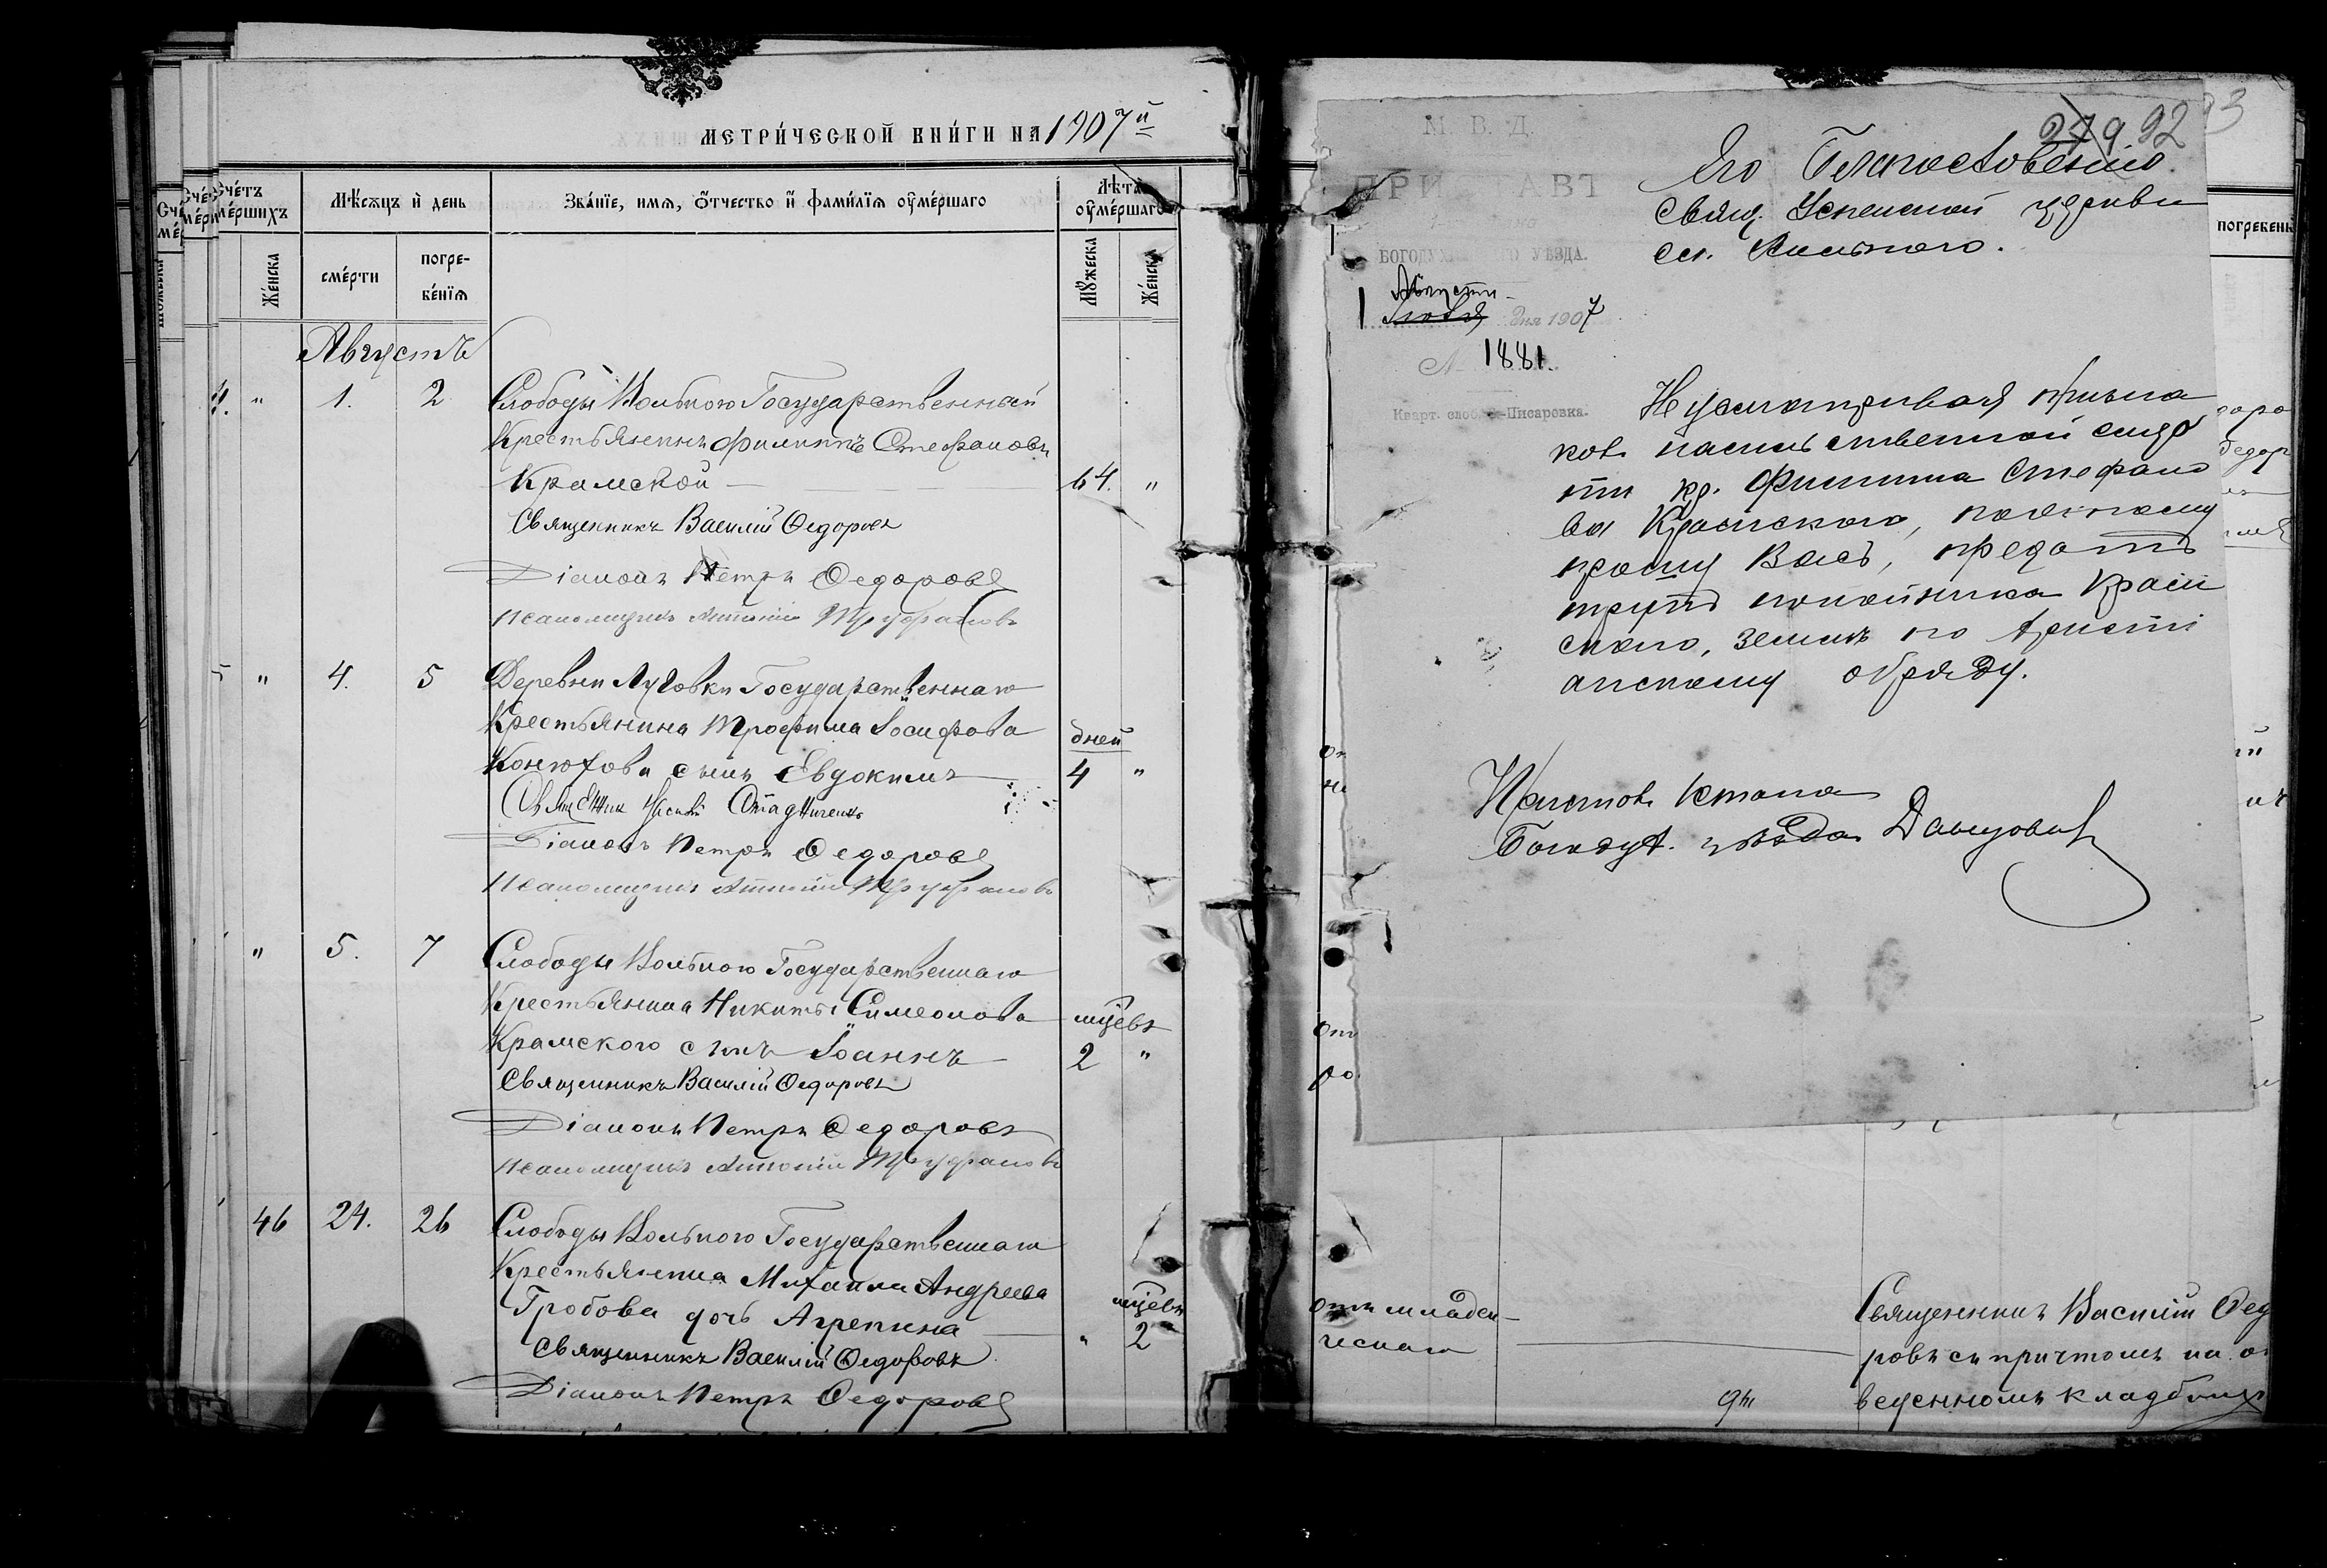 МЕТРИ́ЧЕСКОЙ КНИ́ГИ НА 1907й
Счётъ
мершихъ
Мѣсяцъ и день
Зва́нїе, имя, Отчество и фами́лїя оумершаго
Лѣта
оуме́ршаго
Же́нска
сме́рти
погре-
бе́нїя
Мꙋжеска
Же́нска
Августъ
4. " 1. 2 Слободы Вольного Государственный
Крестьянинъ Филиппъ Стефановъ
Крамской 64. "
Священникъ Василій Ѳедоровъ
Діаконъ Петръ Ѳедоровъ
Псаломщикъ Антоній Труфановъ
5 " 4. 5 Деревни Луговки Государственнаго
Крестьянина Трофима Іосифова
дней
Конюхова сынъ Евдокимъ 4 "
Священник
Діаконъ Петръ Ѳедоровъ
Псаломщикъ Антоній Труфановъ
" 5. 7 Слободы Вольного Государственнаго
Крестьянина Никиты Симеонова мцевъ
Крамского сынъ Іоаннъ 2 "
Священникъ Василій Ѳедоровъ
Діаконъ Петръ Ѳедоровъ
Псаломщикъ Антоній Труфановъ
46 24. 26 Слободы Вольного Государственнаго
Крестьянина Михаила Андреева
Гробова дочь Агрепина мцевъ
" 2
Священникъ Василій Ѳедоровъ
Діаконъ Петръ Ѳедоровъ
279 92 93
М. В. Д.
БОГОДУХ УѢЗДА.
Августа
1 дня 1907
№ 1881.
Кварт. слоб. Писаревка.
Его Благословенію
Свящ. Успенской церкви
сл. Вольного.
Неусматривая призна
ков насильственной смер
ти кр. Филиппа Стефано
ва Крамского, поэтому
прошу Васъ, предать
трупъ покойника Крам
ского, землѣ по христі
анскому обряду.
Приставъ 1 стана
Богодух. уѣзда
погребен
отъ младен-
ческаго
Священникъ Василій Ѳедо
ровъ съ причтомъ на от
веденномъ кладбищѣ